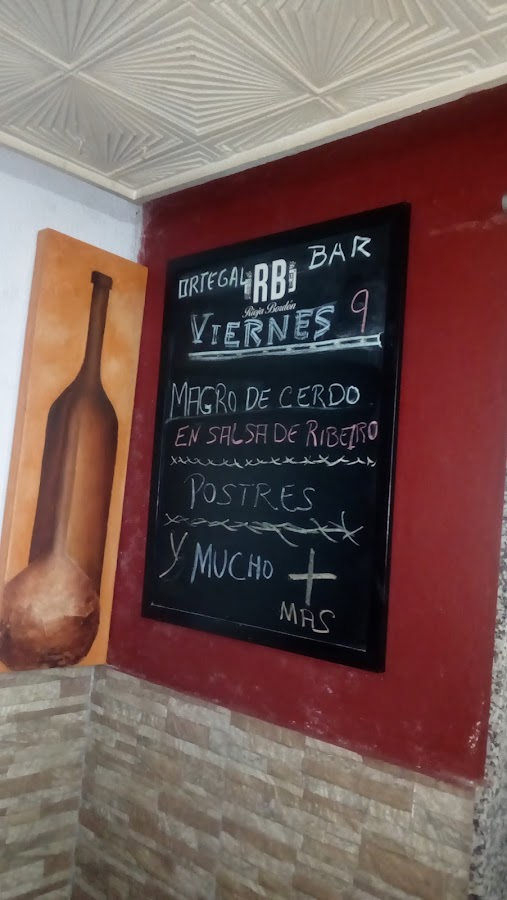 ORTEGAL BAR
RB
Rioja Bordón
VIERNES 9
MAGRO DE CERDO
EN SALSA DE RIBEIRO
POSTRES
Y MUCHO +
MAS